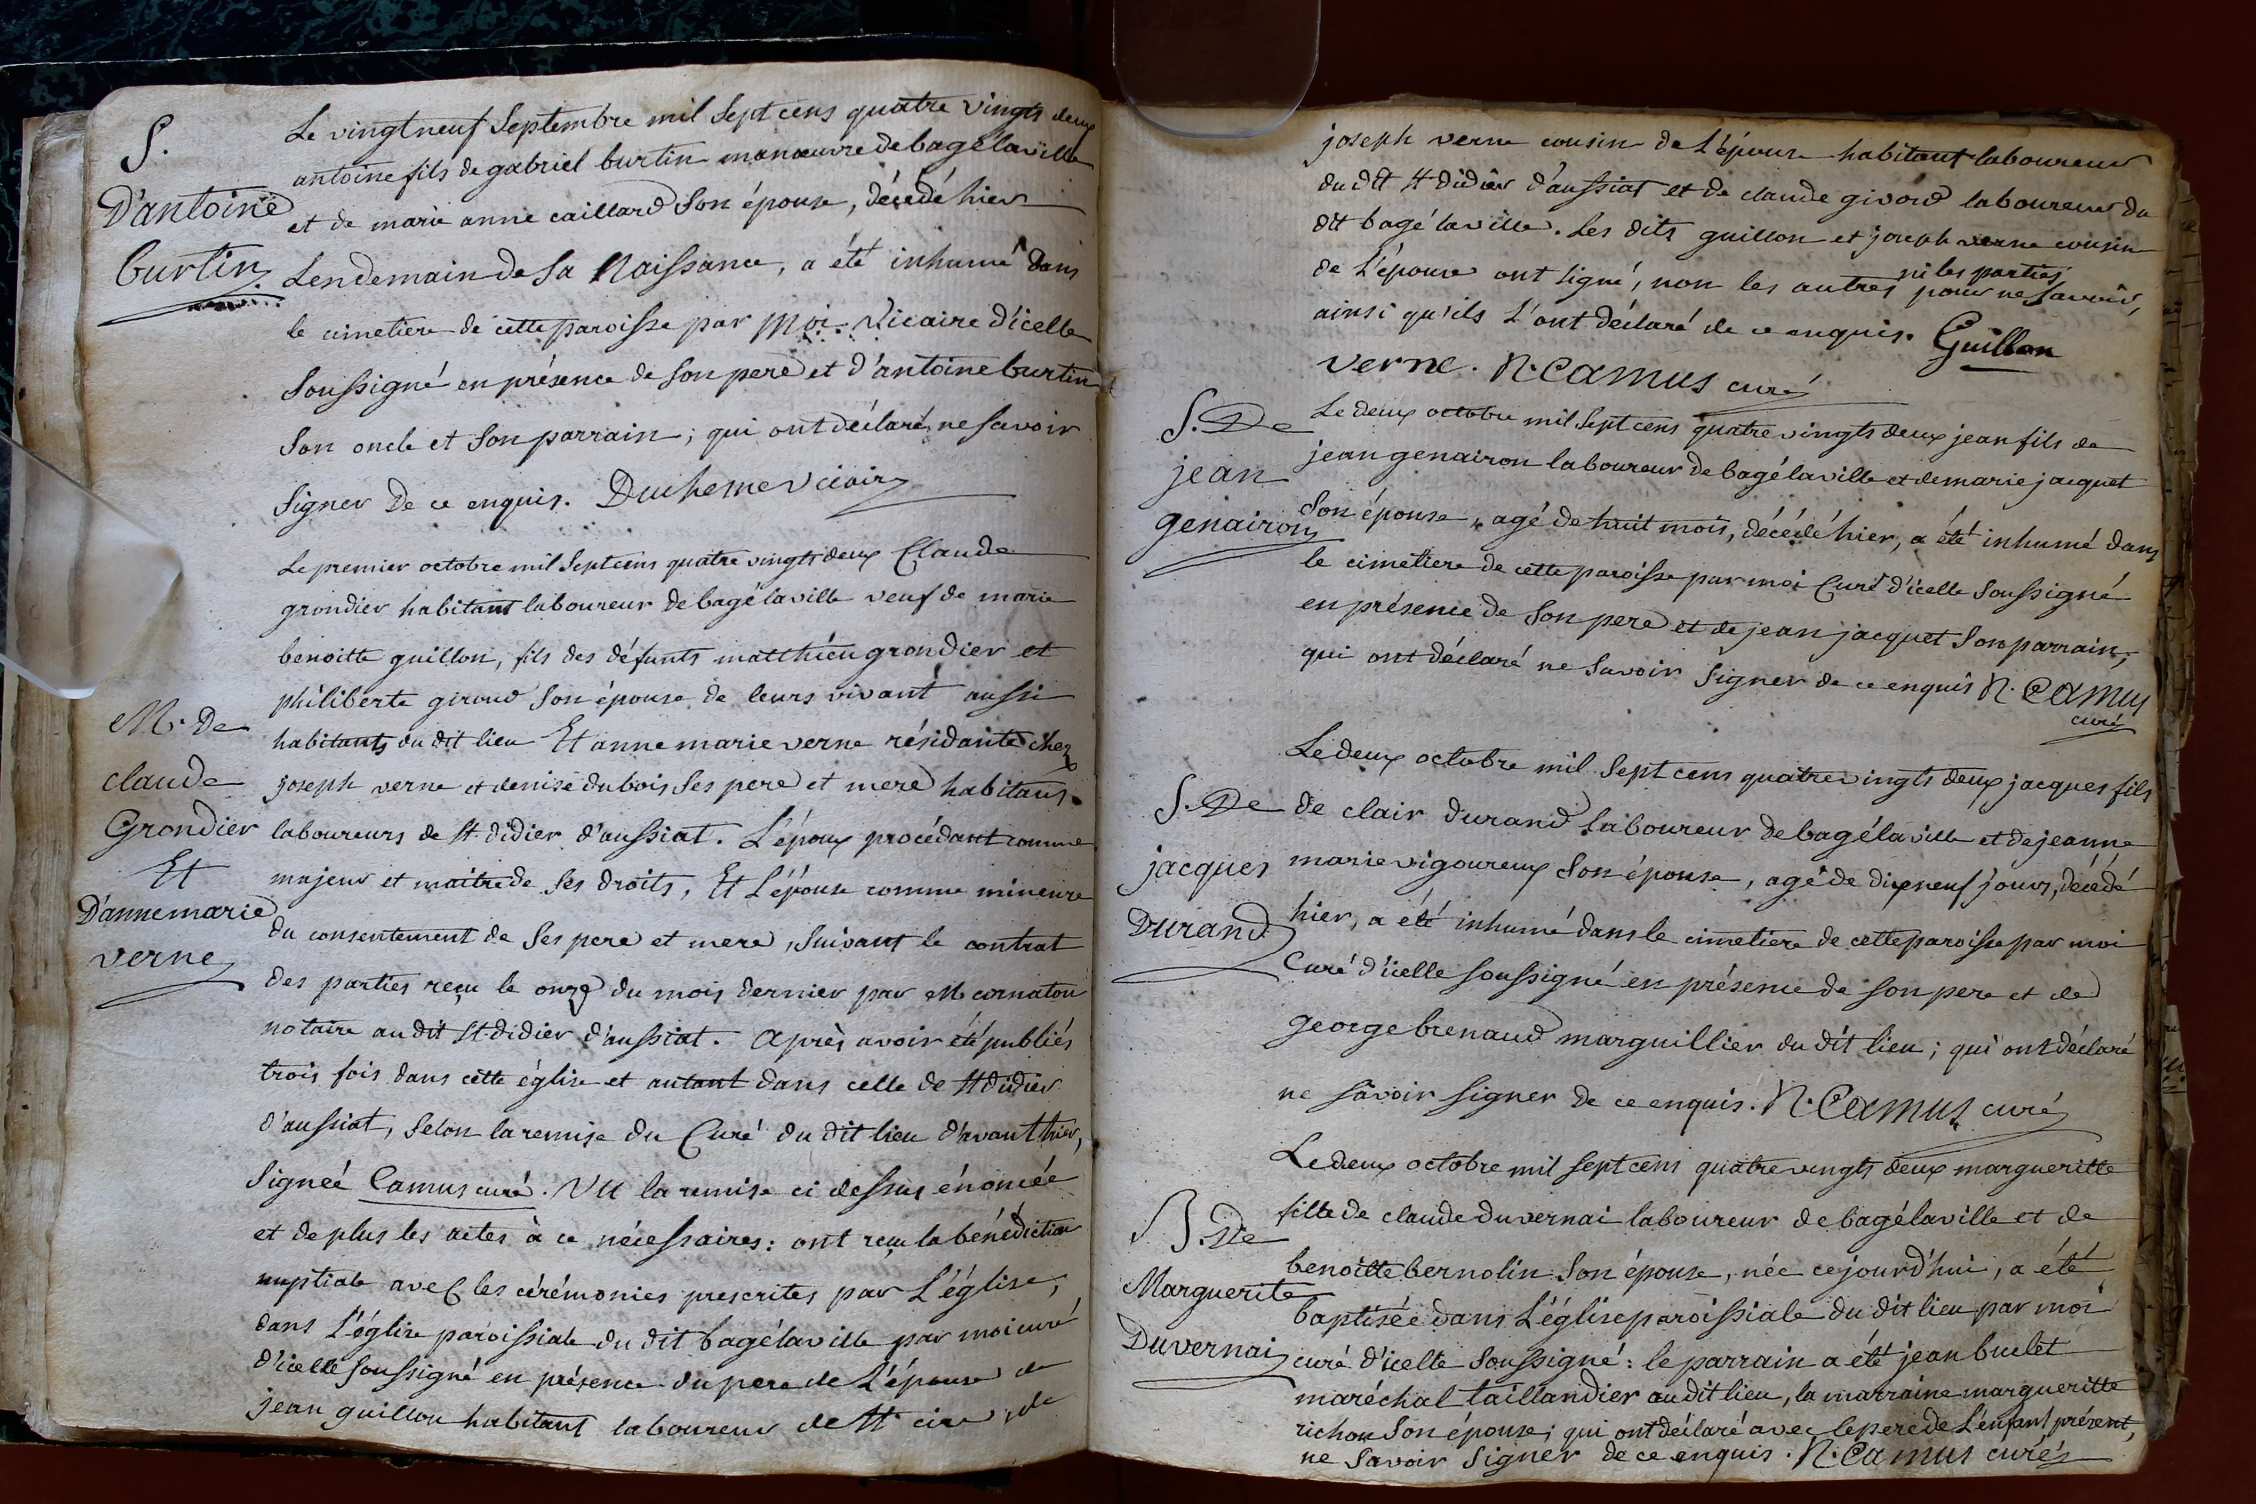 S.
D'antoine
burtin.
Le vingt neuf Septembre mil Sept cens quatre vingts deux
antoine fils de gabriel burtin manœuvre de bagélaville
et de marie anne caillard Son épouse, décédé hier
Lendemain de Sa Naissance, a été inhumé dans
le cimetiere de cette paroisse par Moi. Vicaire d'icelle
Soussigné en présence de Son pere et d'antoine burtin
Son oncle et Son parrain; qui ont déclaré ne Savoir
Signer De ce enquis. Duchesne vicaire
M. De
claude
Grondier
Et
D'anne marie
verne
Le premier octobre mil Sept cens quatre vingts deux Claude
grondier habitant laboureur de bagélaville veuf de marie
benoitte guillon, fils des défunts matthieu grondier et
philiberte giroud Son épouse de leurs vivant aussi
habitants du dit lieu Et anne marie verne résidante chez
joseph verne et denise dubois Ses pere et mere habitans
laboureurs de St. didier d'aussiat. L'époux procédant comme
majeur et maitre de Ses droits, Et L'épouse comme mineure
du consentement de Ses pere et mere, Suivant le contrat
des parties reçu le onze du mois dernier par Me cornaton
notaire au dit St. didier d'aussiat. Après avoir été publiés
trois fois dans cette église et autant dans celle de St didier
d'aussiat, Selon la remise du Curé du dit lieu d'avant hier,
Signée Camus curé. Vu la remise ci dessus énoncée
et de plus les actes à ce nécessaires: ont reçu la bénédiction
nuptiale avec les cérémonies prescrites par L'église,
dans L'église paroissiale du dit bagélaville par moi curé
d'icelle Soussigné en présence du pere de L'épouse de
jean guillon habitant laboureur de St. cire, de
joseph verne cousin de L'épouse habitant laboureur
du dit St didier d'aussiat et de claude givord laboureur du
dit bagé laville. Les dits guillon et joseph verne cousin
de L'épouse ont Signé, non les autres ni les parties pour ne Savoir,
ainsi qu'ils L'ont déclaré de ce enquis. Guillon
verne. N. Camus curé
S. De
jean
genairon
Le deux octobre mil Sept cens quatre vingts deux jean fils de
jean genairon laboureur de bagélaville et de marie jacquet
Son épouse, agé de huit mois, décédé hier, a été inhumé dans
le cimetiere de cette paroisse par moi Curé d'icelle Soussigné
en présence de Son pere et de jean jacquet Son parrain;
qui ont déclaré ne Savoir Signer de ce enquis N. Camus
curé
S. De
jacques
Durand
Le deux octobre mil Sept cens quatre vingts deux jacques fils
de clair durand laboureur de bagélaville et de jeanne
marie vigoureux Son épouse, agé de dix neuf jours, décédé
hier, a été inhumé dans le cimetiere de cette paroisse par moi
Curé d'icelle Soussigné en présence de Son pere et de
george brenaud marguillier du dit lieu; qui ont déclaré
ne Savoir Signer de ce enquis. N. Camus curé
B. De
Marguerite
Duvernai
Le deux octobre mil Sept cens quatre vingts deux margueritte
fille de claude duvernai laboureur de bagélaville et de
benoitte bernolin Son épouse, née cejourd'hui, a été
baptisée dans L'église paroissiale du dit lieu par moi
curé d'icelle Soussigné: le parrain a été jean buclet
maréchal taillandier audit lieu, la marraine margueritte
richon Son épouse; qui ont déclaré avec le pere de L'enfant présent,
ne Savoir Signer de ce enquis. N. Camus curé